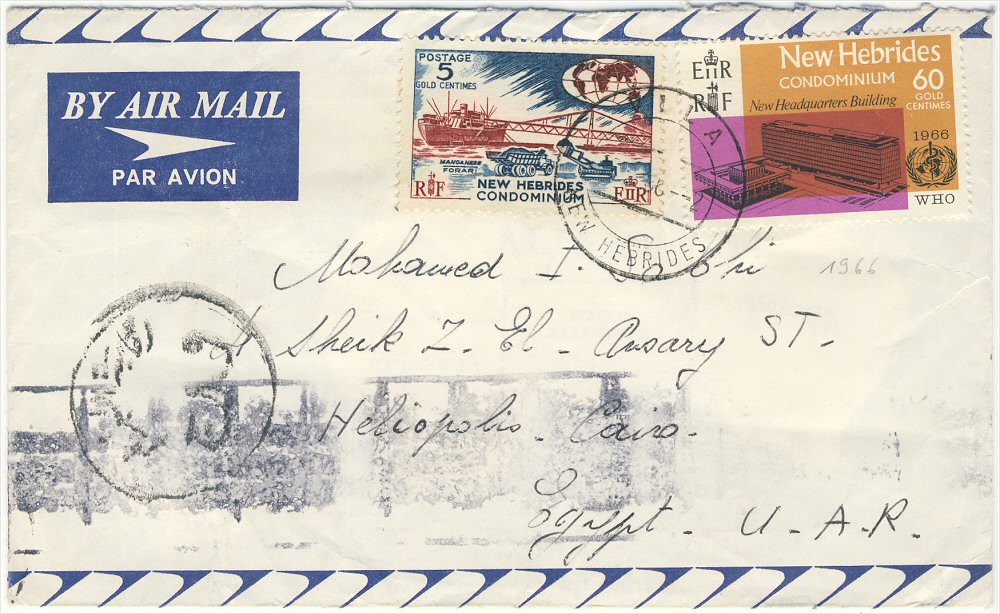 BY AIR MAIL
PAR AVION
POSTAGE
5
GOLD CENTIMES
MANGANESE
FORARI
RF
NEW HEBRIDES
CONDOMINIUM
EIIR
EIIR
RF
New Hebrides
CONDOMINIUM
60
GOLD
CENTIMES
New Headquarters Building
1966
WHO
VILA
NEW HEBRIDES
Mohamed I.
1966
Sheik Z. El - Ansary ST.
Heliopolis - Cairo -
Egypt - U - A.R.